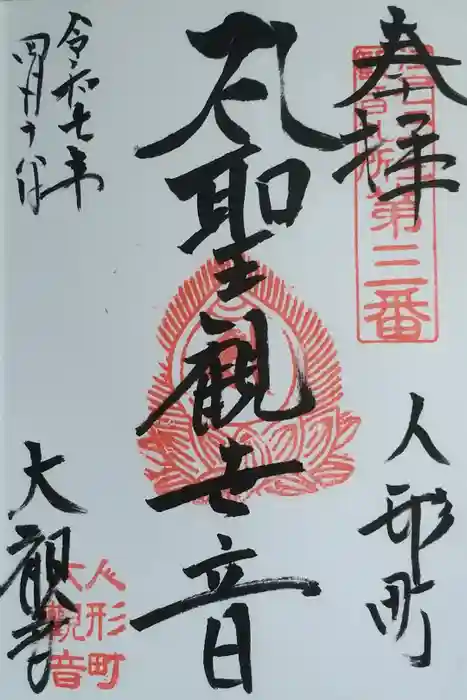 奉拝
第三番
人形町
聖観世音
令和七年
四月十八日
大観音
人形町
大観音